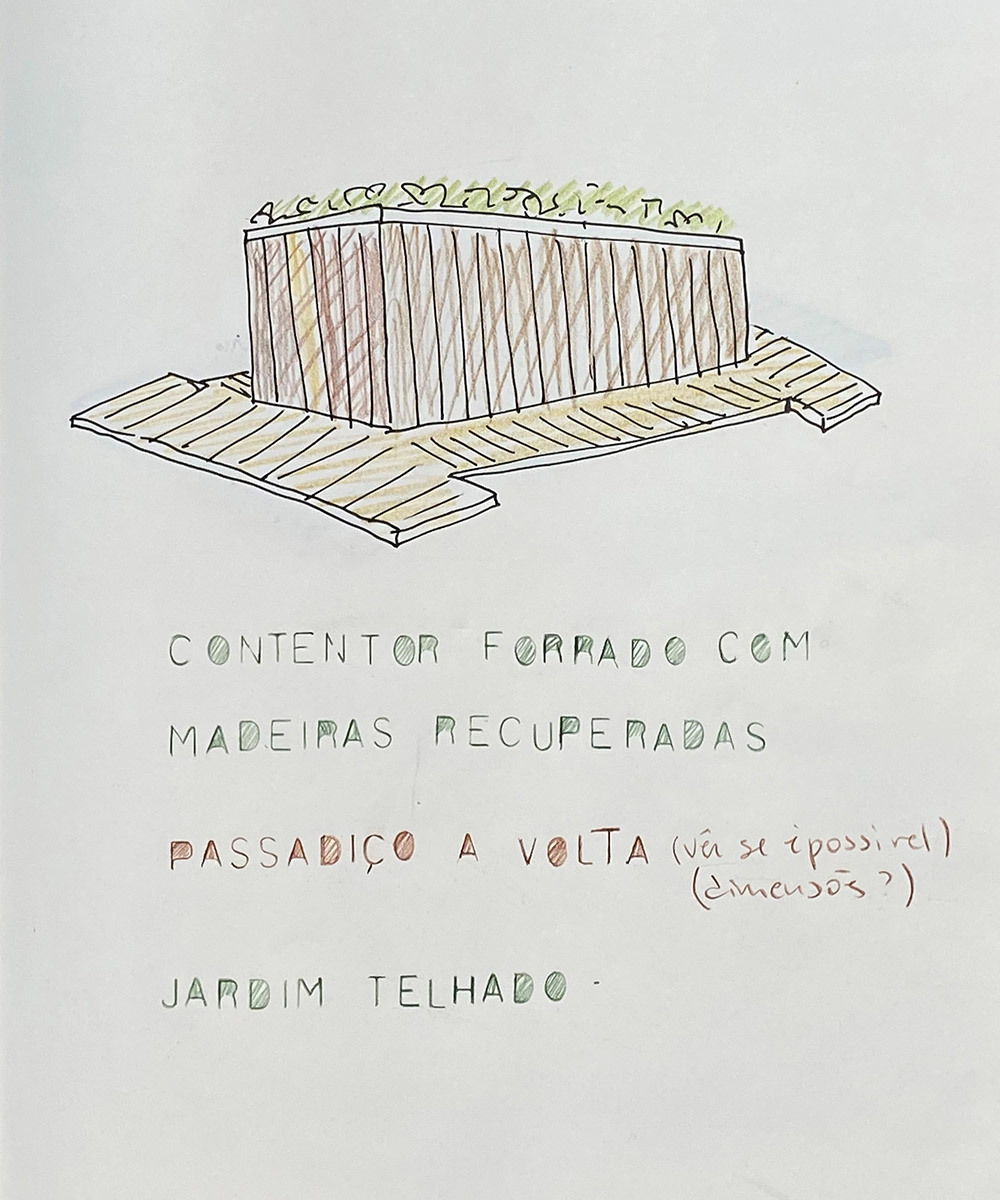 CONTENTOR FORRADO COM
MADEIRAS RECUPERADAS
PASSADIÇO A VOLTA (ver se é possivel)
(dimensõs?)
JARDIM TELHADO